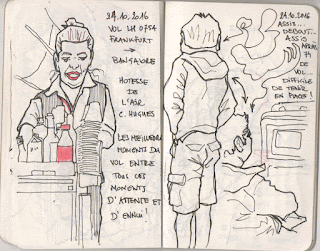 24.10.2016
VOL LH 0754
FRANKFURT
→
BANGALORE
HOTESSE
DE
L'AIR
C. HUGHES
LES MEILLEURS
MOMENTS DU
VOL ENTRE
TOUS CES
MOMENTS
D'ATTENTE ET
D'ENNUI!
24.10.2016
ASSIS...
DEBOUT...
ASSIS
DE VOL..
DIFFICILE
DE TENIR
EN PLACE!